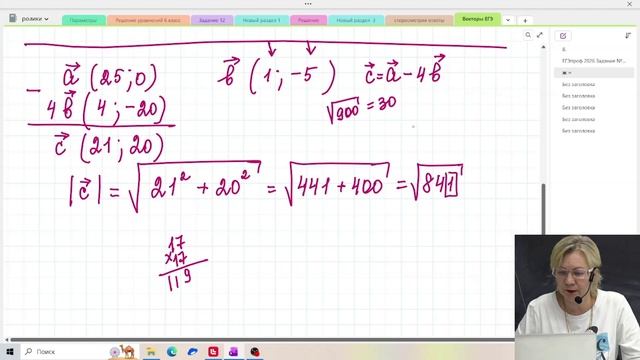 розики
Параметры
Решение уравнений 6 класс
Задание 12
Новый раздел 1
Решение
Новый раздел 2
стереометрия ответы
Векторы ЕГЭ
a⃗ (25; 0) b⃗ (1; -5) c⃗ = a⃗ - 4b⃗
- 4b⃗ (4; -20) √900 = 30
c⃗ (21; 20)
|c⃗| = √21² + 20² = √441 + 400 = √841
17
×17
119
6.
ЕГЭпроф 2026. Задание №...
Без заголовка
Без заголовка
Без заголовка
Без заголовка
Без заголовка
Поиск